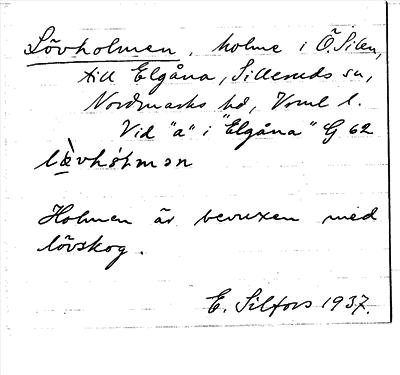 Lövholmen, holme i Ö. Sillen,
till Elgåna, Silleruds sn,
Nordmarks hd, Vrml l.
Vid "a" i "Elgåna" G 62
Holmen är bevuxen med
lövskog.
E. Silfors 1937.